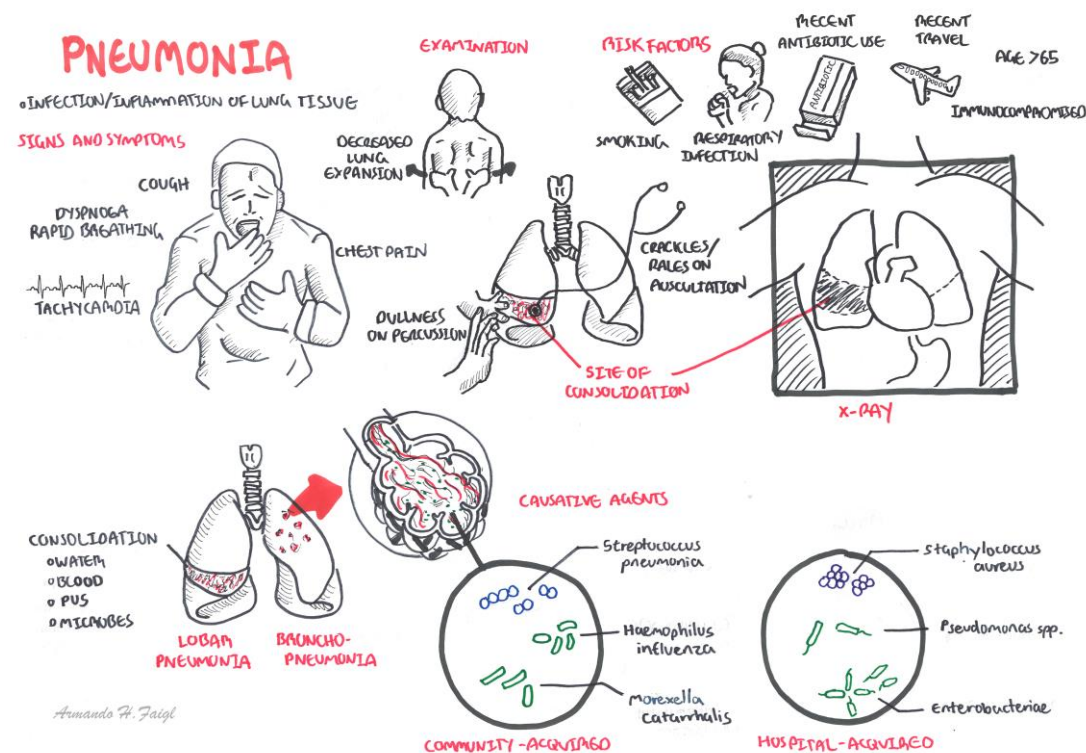 PNEUMONIA
INFECTION/INFLAMMATION OF LUNG TISSUE
SIGNS AND SYMPTOMS
COUGH
DYSPNOEA
RAPID BREATHING
CHEST PAIN
TACHYCARDIA
EXAMINATION
DECREASED
LUNG
EXPANSION
DULLNESS
ON PERCUSSION
CRACKLES/
RALES ON
AUSCULTATION
SITE OF
CONSOLIDATION
RISK FACTORS
SMOKING
RESPIRATORY
INFECTION
RECENT
ANTIBIOTIC USE
ANTIBIOTIC
RECENT
TRAVEL
AGE >65
IMMUNOCOMPROMISED
X-RAY
CONSOLIDATION
WATER
BLOOD
PUS
MICROBES
LOBAR
PNEUMONIA
BRONCHO-
PNEUMONIA
CAUSATIVE AGENTS
Streptococcus
pneumonia
Haemophilus
influenza
Morexella
Catarrhalis
COMMUNITY-ACQUIRED
Staphylococcus
aureus
Pseudomonas spp.
Enterobacteriae
HOSPITAL-ACQUIRED
Armando H. Faigl